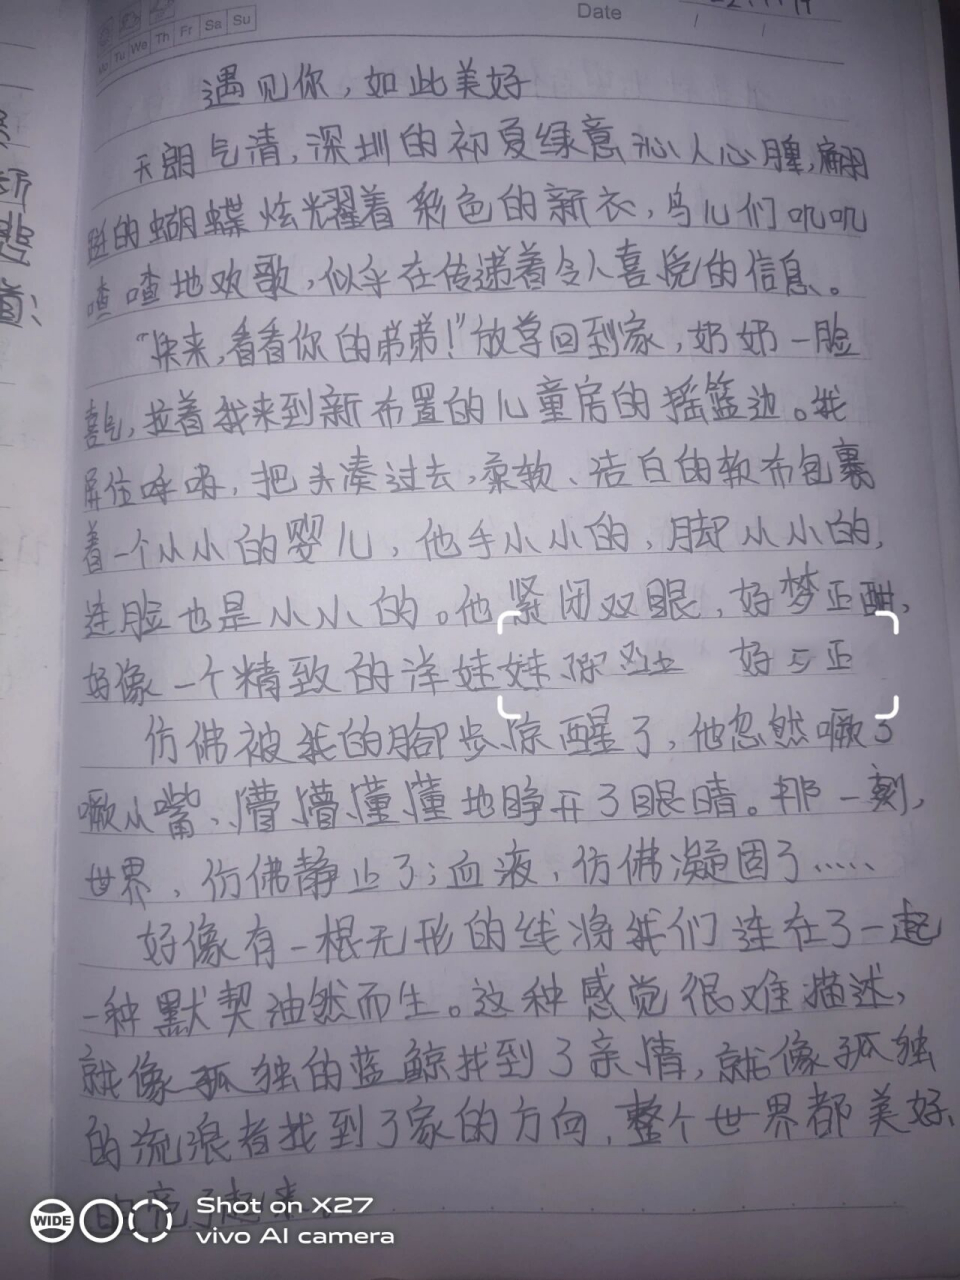 Tu We Th Fr Sa Su
Date
遇见你，如此美好
天朗气清，深圳的初夏绿意沁人心脾，翩
跹的蝴蝶炫耀着彩色的新衣，鸟儿们叽叽
喳喳地欢歌，似乎在传递着令人喜悦的信息。
“快来，看看你的弟弟！”放学回到家，奶奶一脸
喜气，拉着我来到新布置的儿童房的摇篮边。我
屏住呼吸，把头凑过去，柔软、洁白的软布包裹
着一个小小的婴儿，他手小小的，脚小小的，
连脸也是小小的。他紧闭双眼，好梦正酣，
好像一个精致的洋娃娃 好 正
仿佛被我的脚步惊醒了，他忽然噘了
噘小嘴，懵懵懂懂地睁开了眼睛。那一刻，
世界，仿佛静止了；血液，仿佛凝固了……
好像有一根无形的线将我们连在了一起
一种默契油然而生。这种感觉很难描述，
就像孤独的蓝鲸找到了亲情，就像孤独
的流浪者找到了家的方向，整个世界都美好
的亮了起来
WIDE
Shot on X27
vivo AI camera